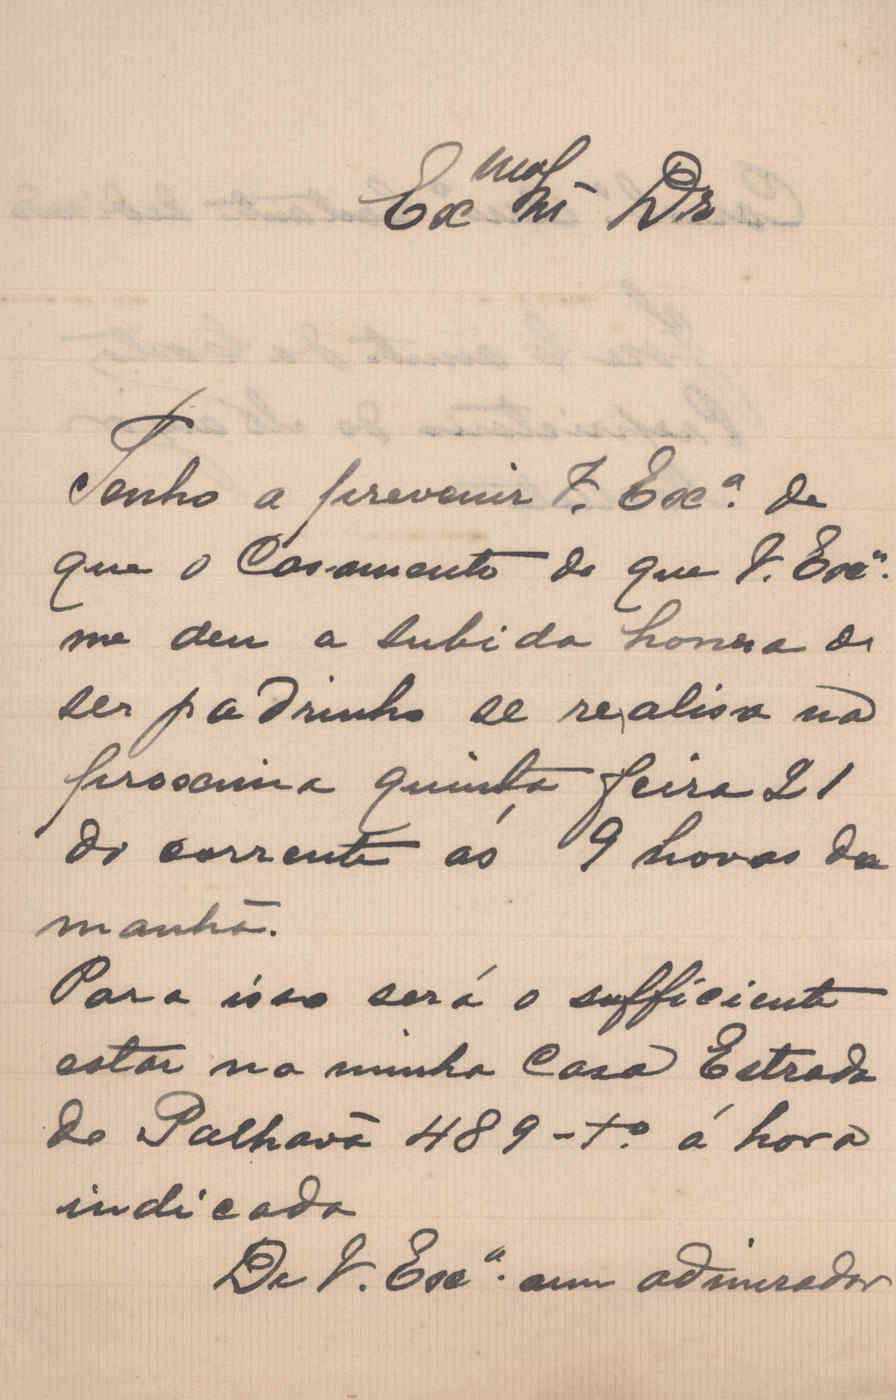 Ex.mo Sr Dr
Tenho a prevenir V. Exª. de
que o Casamento de que V. Exª.
me deu a subida honra de
ser padrinho se realisa na
proxima quinta feira 21
do corrente ás 9 horas da
manhã.
Para isso será o sufficiente
estar na minha Casa Estrada
de Palhavã 489-r/º á hora
indicada
De V. Exª. um admirador